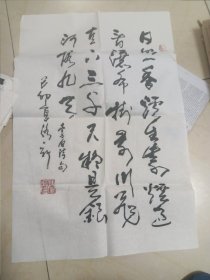 日照香炉生紫烟遥
看瀑布挂前川飞流
直下三千尺疑是银
河落九天
李白诗句